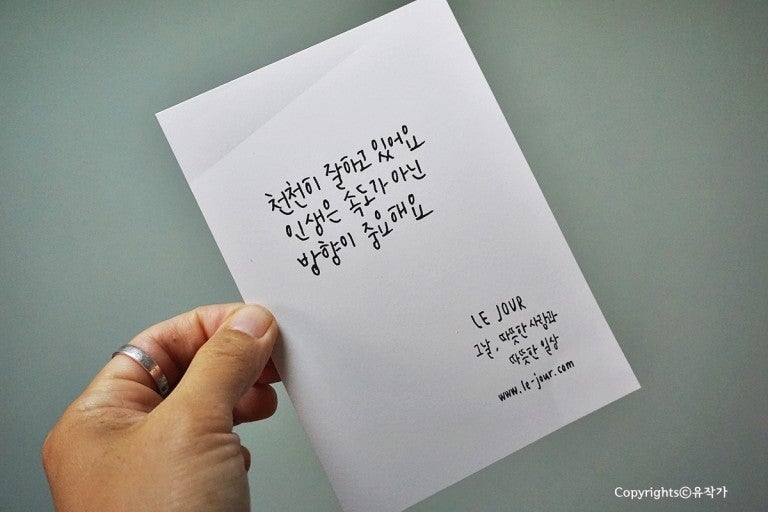 천천히 잘하고 있어요
인생은 속도가 아닌
방향이 중요해요
LE JOUR
그날, 따뜻한 사람과
따뜻한 일상
www.le-jour.com
Copyrightsⓒ유작가